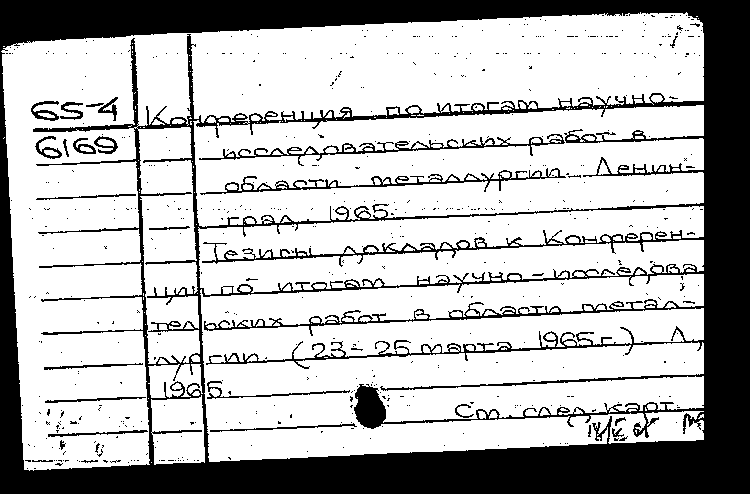 65-4
6169
Конференция по итогам научно-
исследовательских работ в
области металлургии. Ленин-
град, 1965.
Тезисы докладов к Конферен-
ции по итогам научно-исследова
тельских работ в области метал-
лургии. (23-25 марта 1965 г.) Л.,
1965.
См. след. карт.